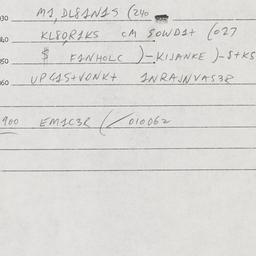 030 M1 DL81N1S (240
040 KL8QR1KS CM SOWD1+ (027
050 $ F1NHOLC )-KIJANKE )-S+KS
060 UPG1S+VONK+ 1NRAJNVAS38
900 EM1C3R (/010062